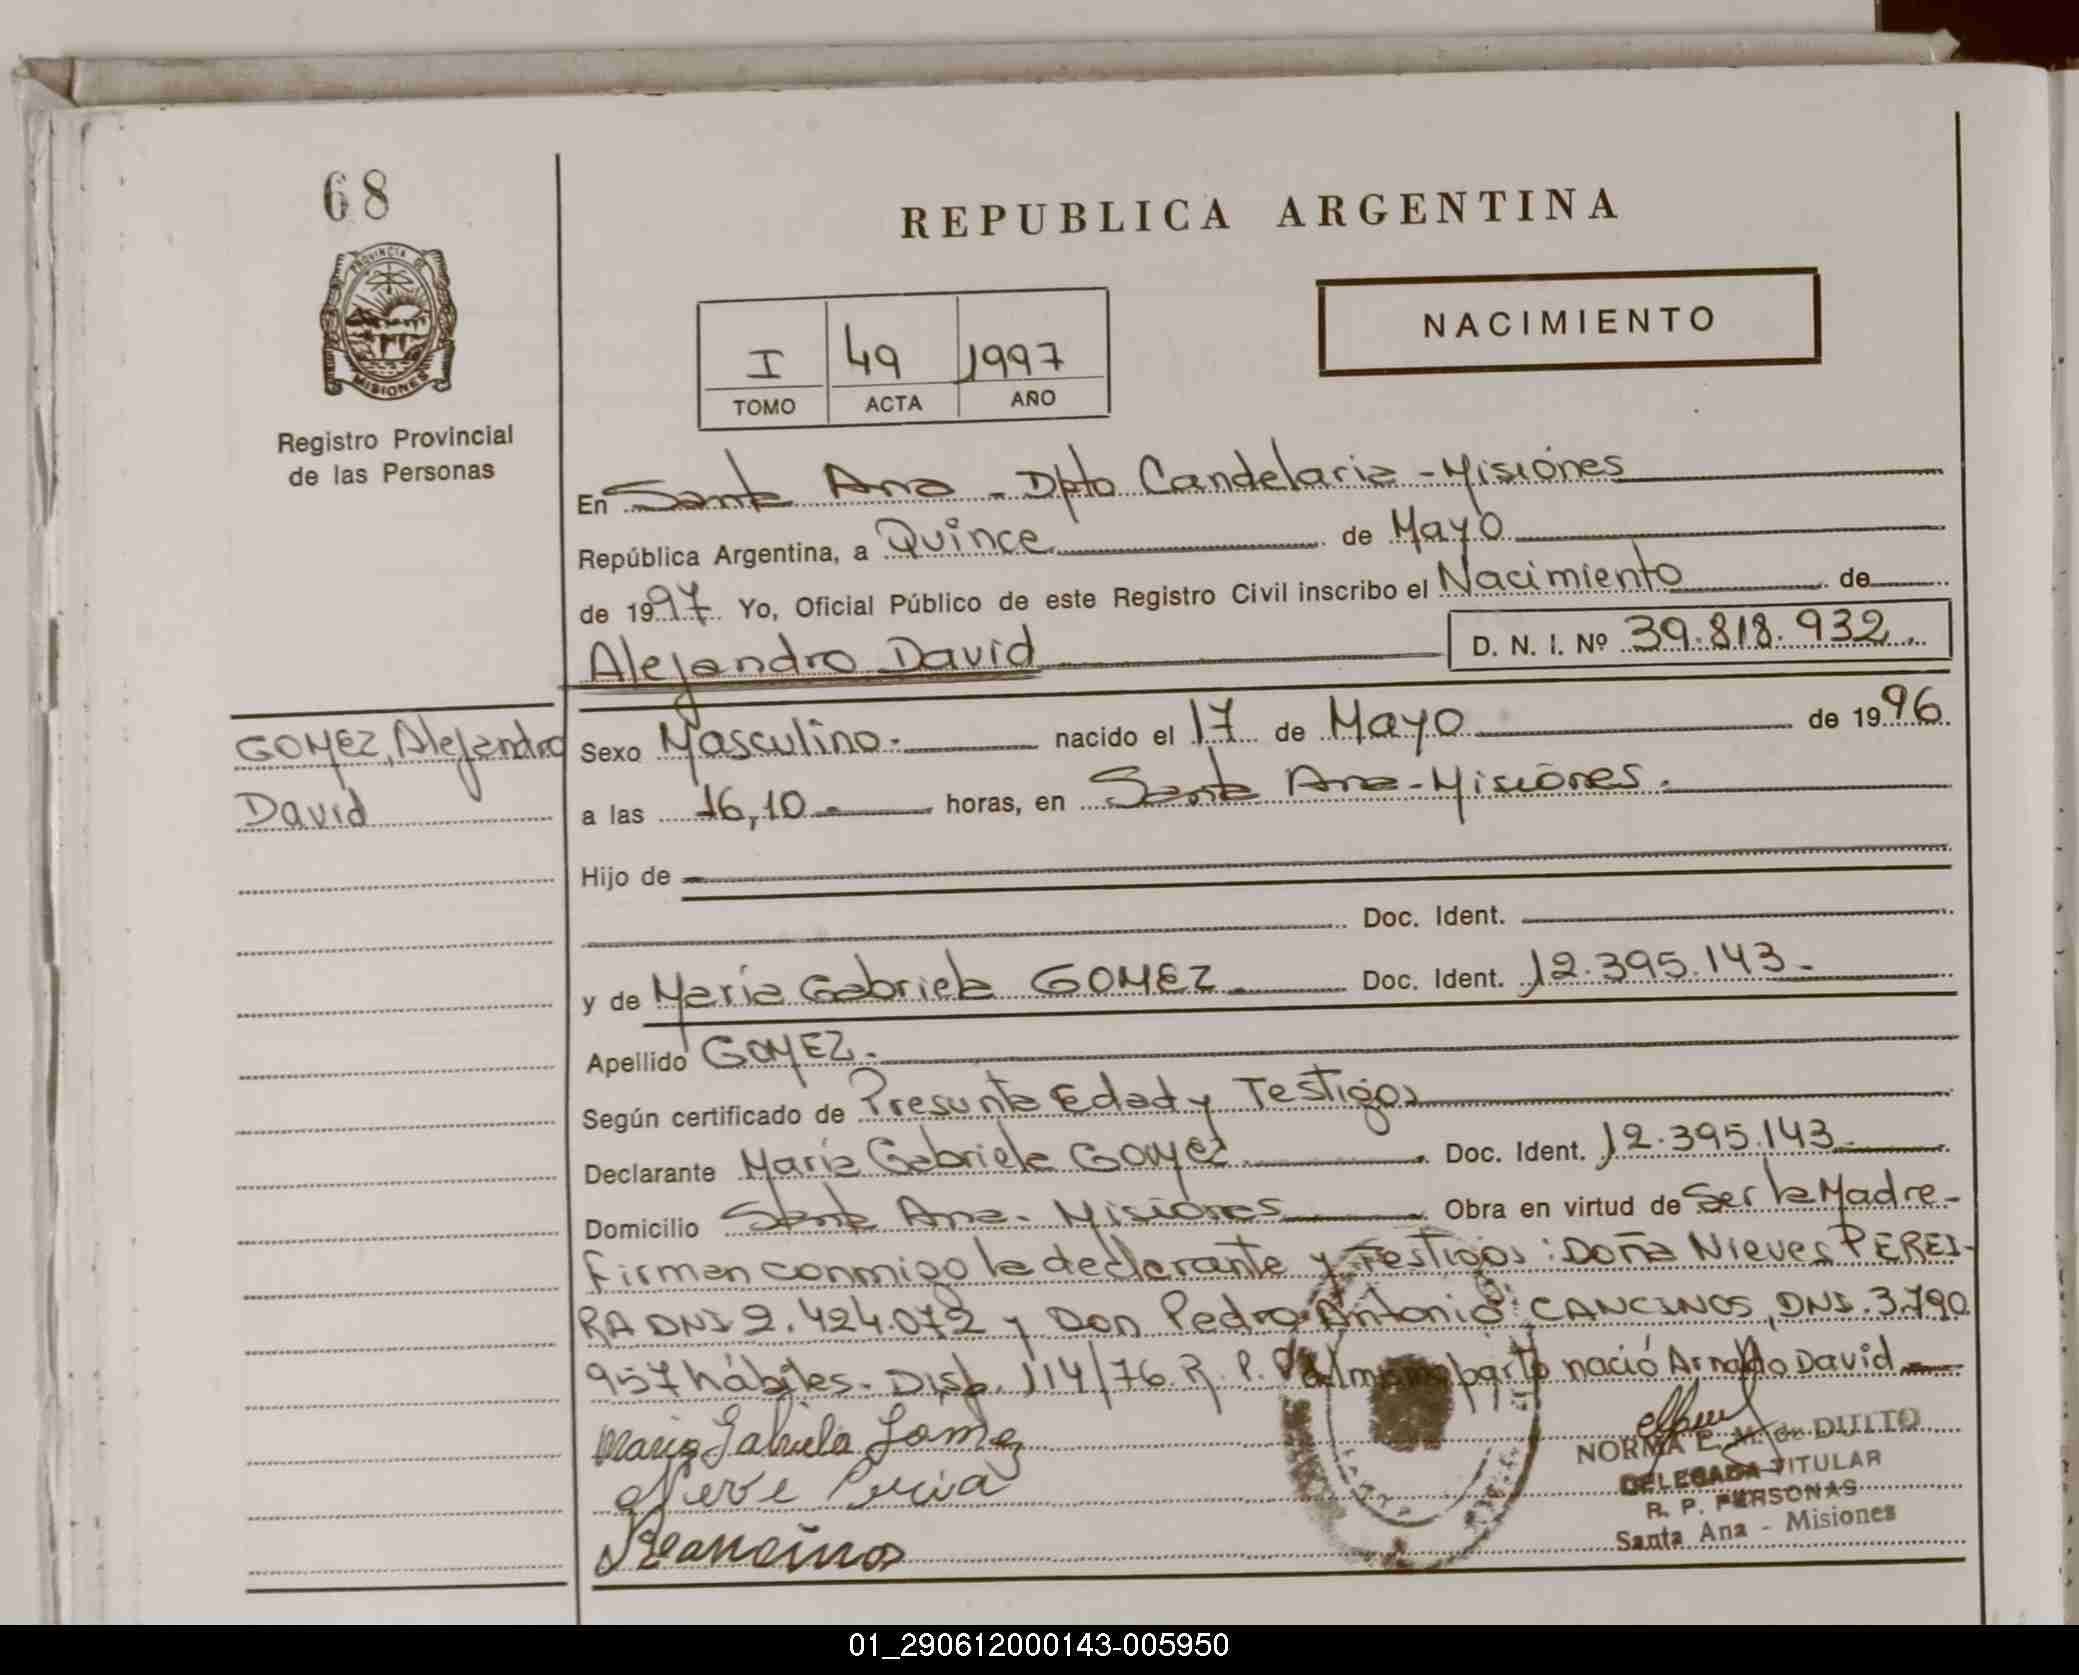 68
PROVINCIA DE
MISIONES
Registro Provincial
de las Personas
REPUBLICA ARGENTINA
NACIMIENTO
I 49 1997
TOMO ACTA AÑO
En Santa Ana - Dpto Candelaria - Misiones
República Argentina, a Quince de Mayo
de 1997 Yo, Oficial Público de este Registro Civil inscribo el Nacimiento de
Alejandro David D. N. I. Nº 39.818.932
GOMEZ, Alejandro
David
Sexo Masculino.- nacido el 17 de Mayo de 1996
a las 16,10 horas, en Santa Ana - Misiones.
Hijo de
Doc. Ident.
y de María Gabriela GOMEZ Doc. Ident. 12.395.143.-
Apellido GOMEZ.
Según certificado de Presunta Edad y Testigos
Declarante María Gabriela Gomez Doc. Ident. 12.395.143
Domicilio Santa Ana - Misiones Obra en virtud de Ser la Madre -
Firman conmigo la declarante y Testigos: Doña Nieves PEREI-
RA DNI 2.424.072 y Don Pedro Antonio CANCINOS, DNI. 3.790
957 hábiles. Disp. 114/76 R. P. P. parto nació Arnaldo David
Maria Gabriela Gomez
NORMA E. M. de DUITO
DELEGADA TITULAR
R. P. PERSONAS
Santa Ana - Misiones
01_290612000143-005950